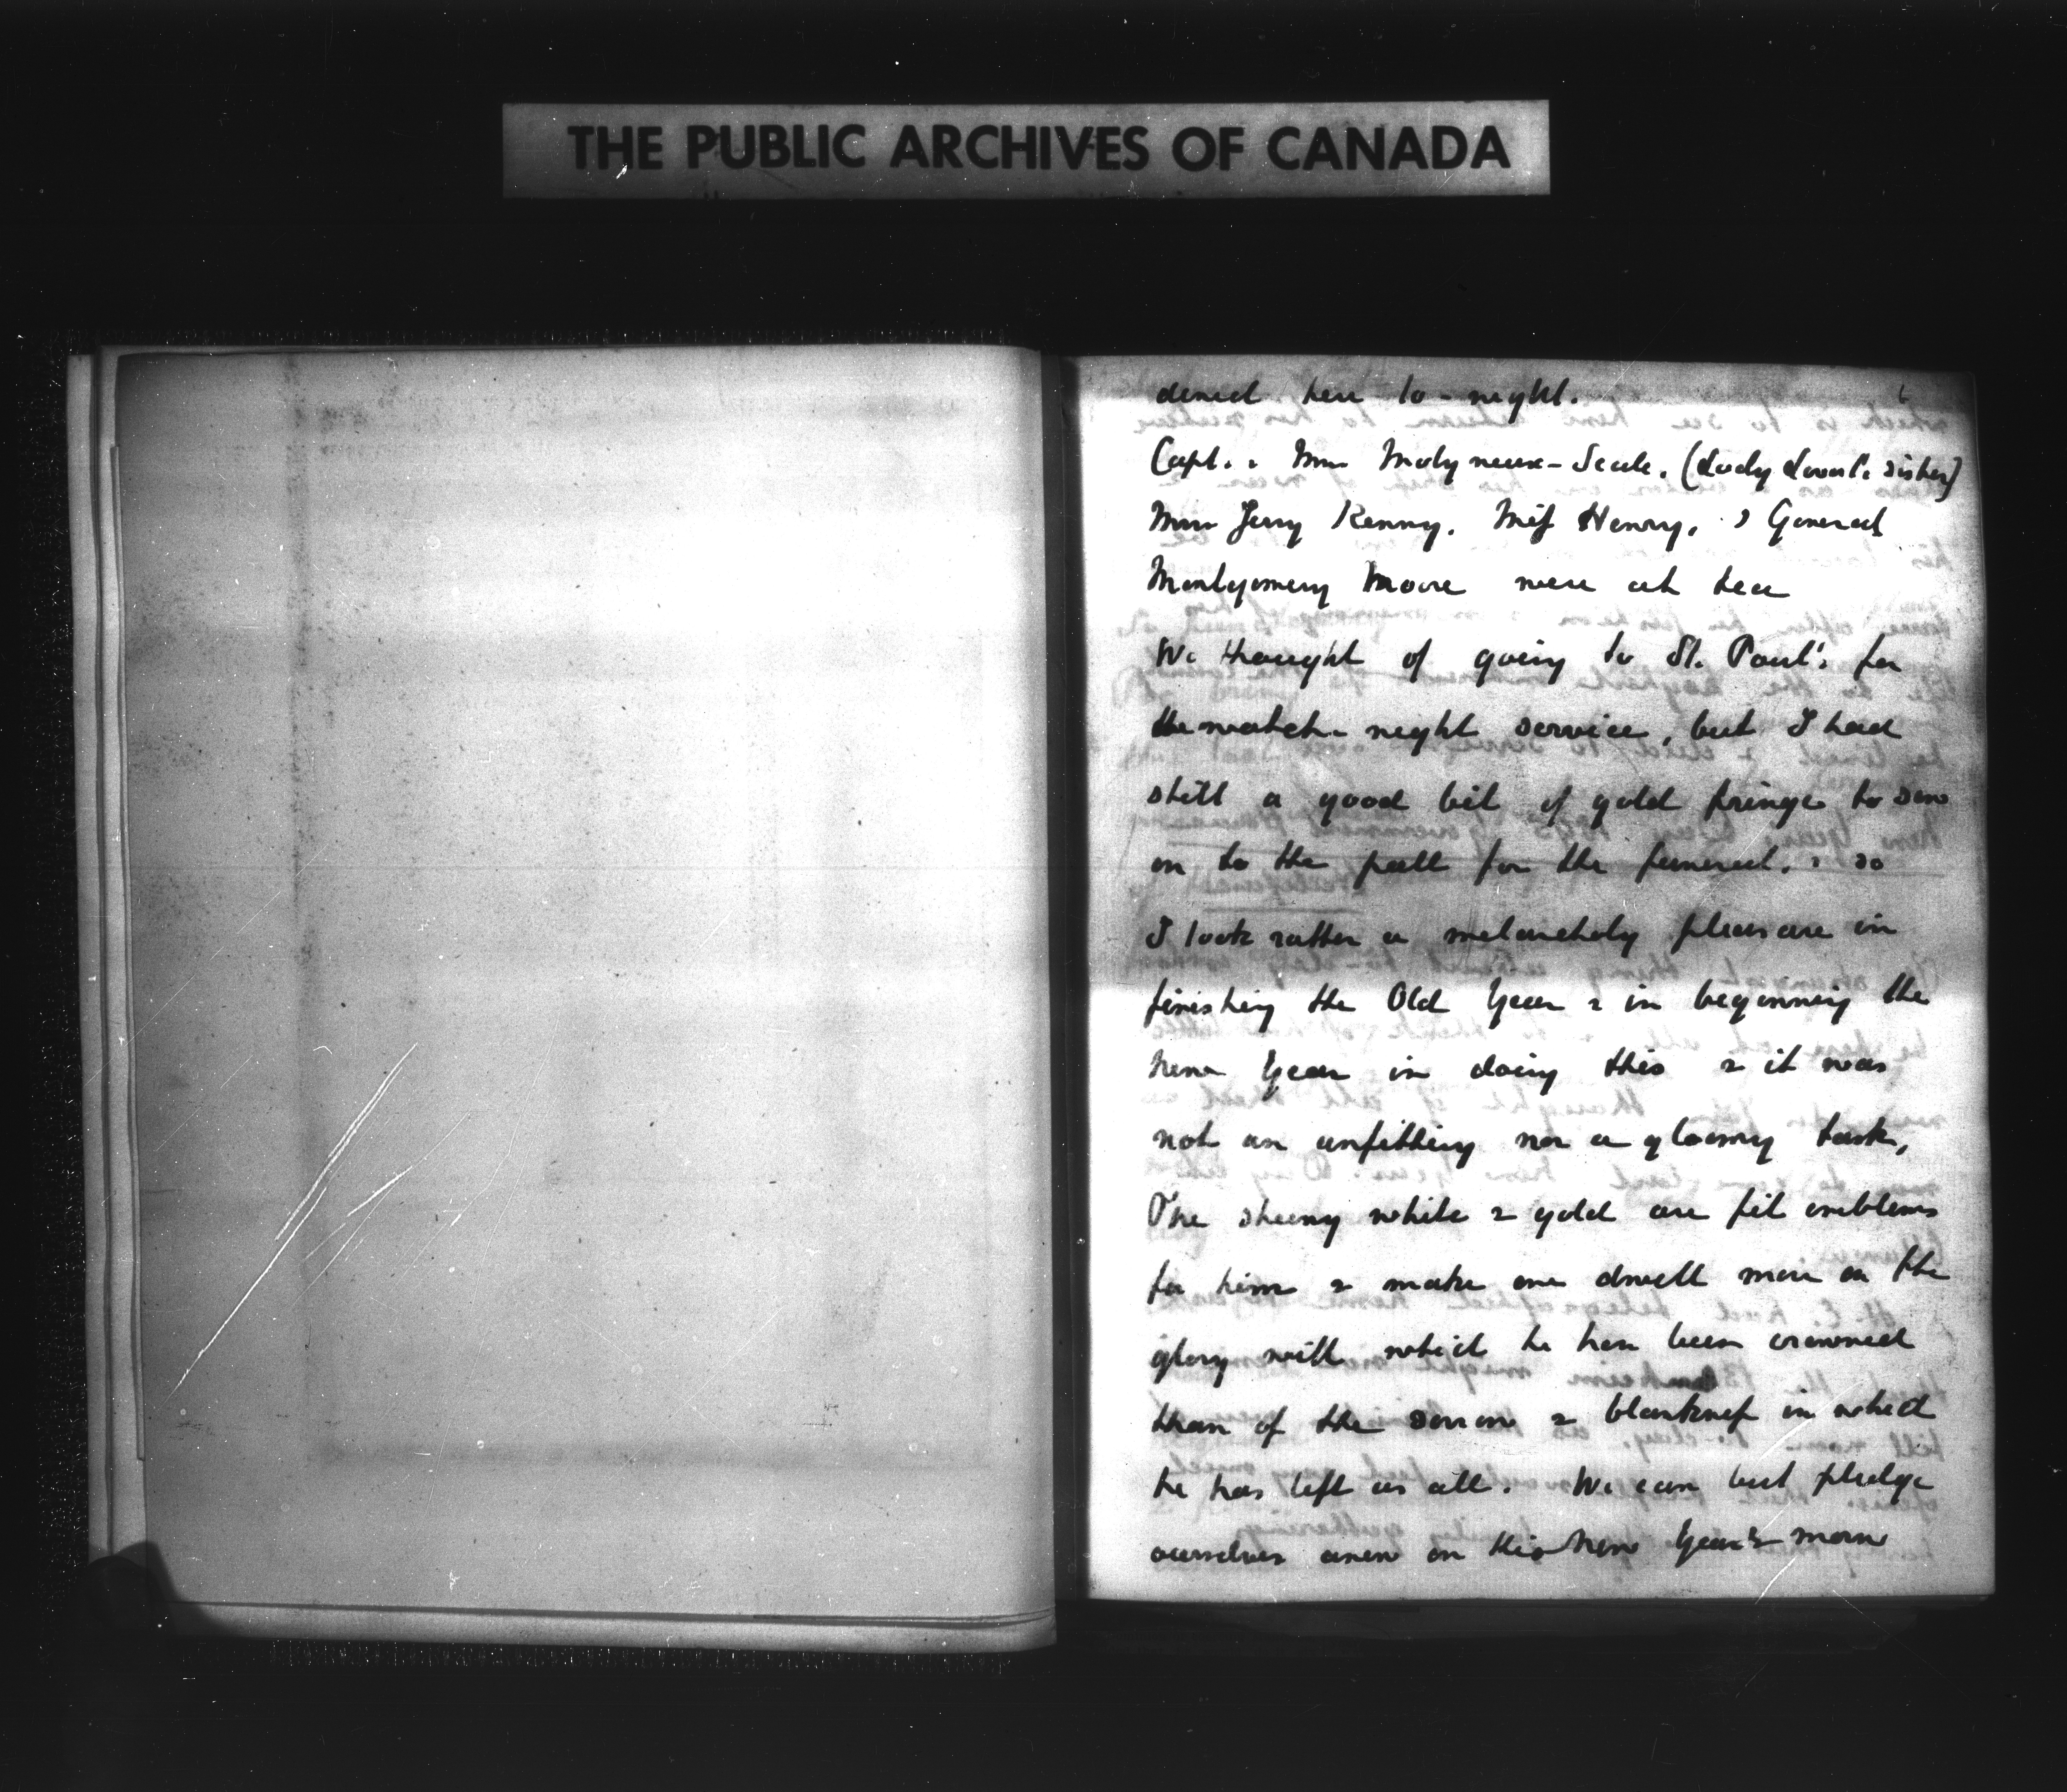 THE PUBLIC ARCHIVES OF CANADA
dined here to-night.
Capt. & Mrs Molyneux-Seele. (Lady Lovat's sister)
Mrs Jerry Kenny. Miss Henry. & General
Montgomery Moore were at tea
We thought of going to St. Paul's for
the watch-night service, but I had
still a good bit of gold fringe to sew
on to the pall for the funeral. & so
I took rather a melancholy pleasure in
finishing the Old Year & in beginning the
New Year in doing this & it was
not an unfitting nor a gloomy task,
The sheeny white & gold are fit emblems
for him & make one dwell more on the
glory with which he has been crowned
than of the sorrow & blankness in which
he has left us all. We can but pledge
ourselves anew on this New Year's morn